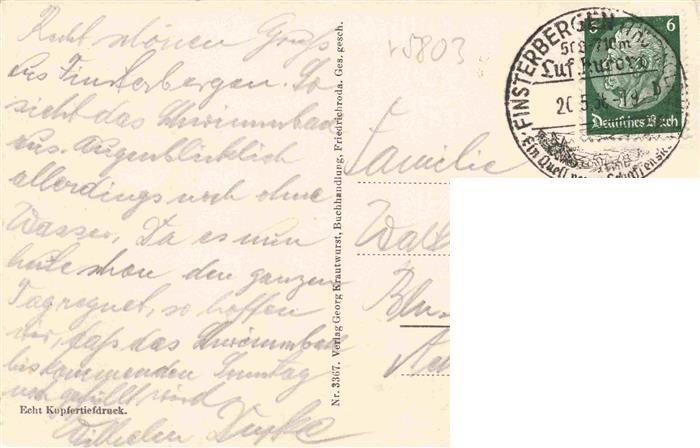 Recht schönen Gruß
aus Finsterbergen. So
sieht das Schwimmbad
aus. Augenblicklich
allerdings noch ohne
Wasser. Da es nun
heute schon den ganzen
Tag regnet, so hoffen
wir, daß das Schwimmbad
bis kommenden Sonntag
noch gefüllt wird.
Wilhelm
Echt Kupfertiefdruck.
Nr. 3367. Verlag Georg Krautwurst, Buchhandlung, Friedrichroda. Ges. gesch.
5803
Familie
FINSTERBERGEN
Luftkurort
Ein Quell
6
Deutsches Reich